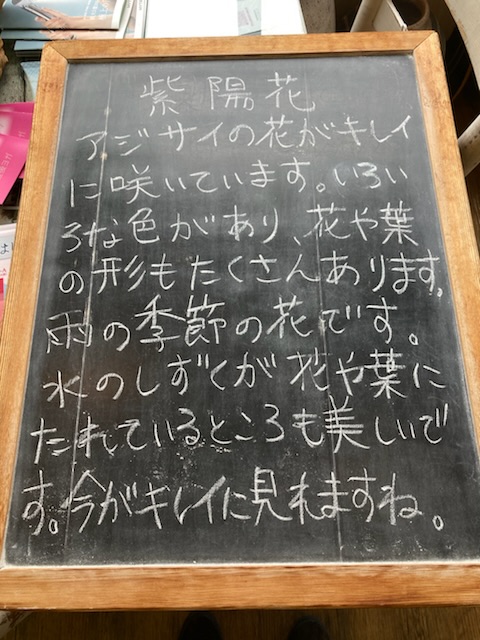 紫陽花
アジサイの花がキレイ
に咲いています。いろい
ろな色があり、花や葉
の形もたくさんあります。
雨の季節の花です。
水のしずくが花や葉に
たれているところも美しいで
す。今がキレイに見れますね。